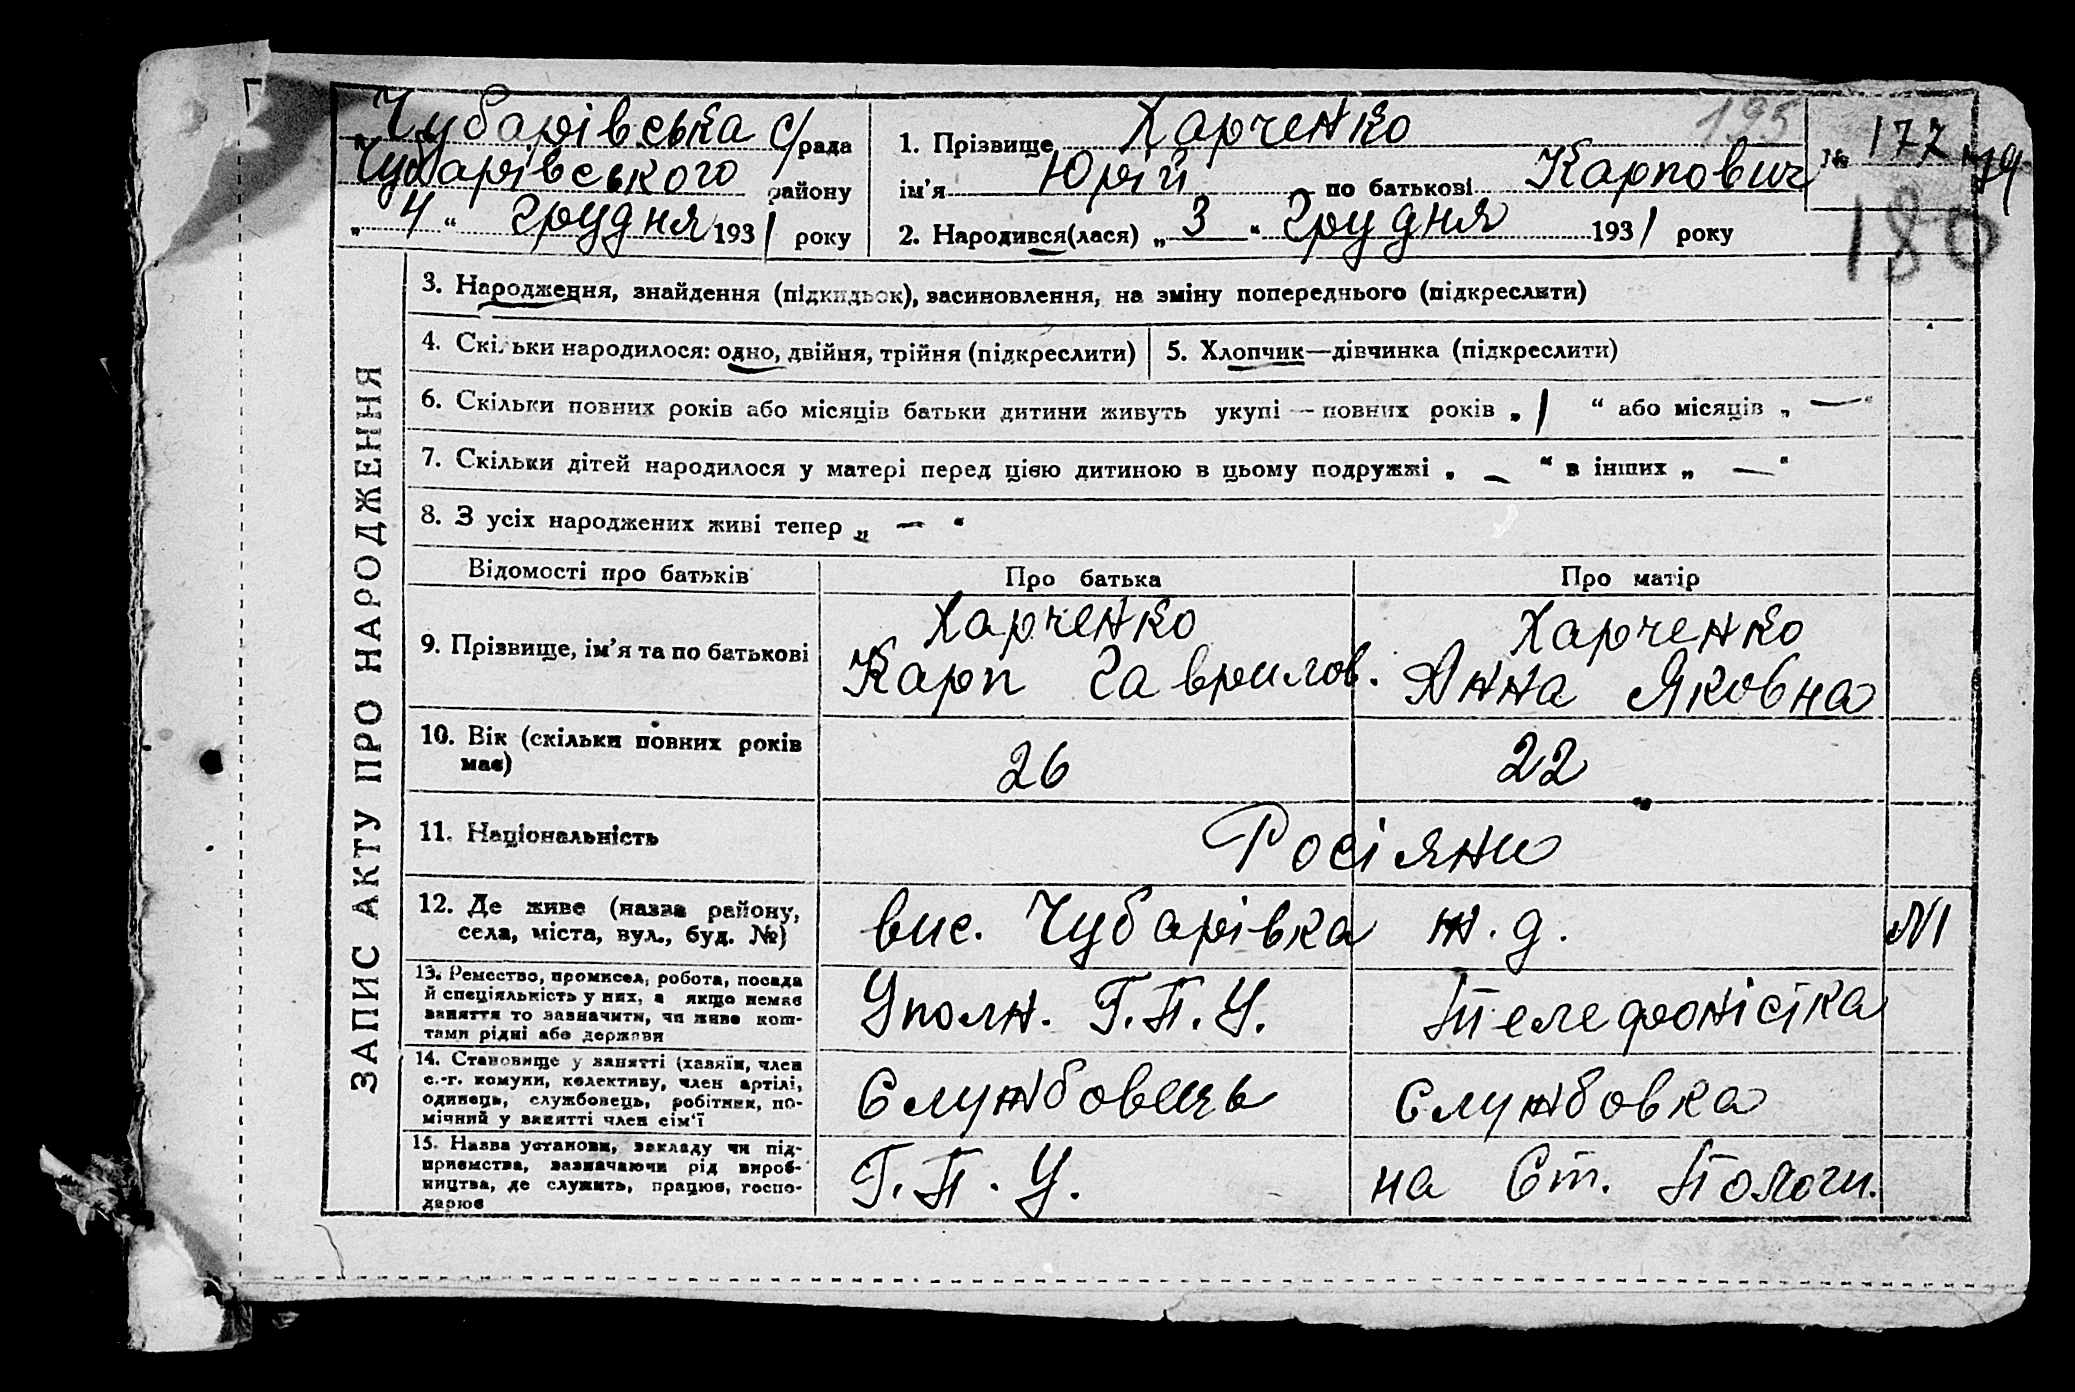 Чубарівська с/рада
Чубарівського району
„4“ грудня 1931 року
1. Прізвище Харченко
ім’я Юрій по батькові Карпович
2. Народився(лася) „3“ Грудня 1931 року
195
№ 177
180
ЗАПИС АКТУ ПРО НАРОДЖЕННЯ
3. Народження, знайдення (підкидьок), засиновлення, на зміну попереднього (підкреслити)
4. Скільки народилося: одно, двійня, трійня (підкреслити)
5. Хлопчик—дівчинка (підкреслити)
6. Скільки повних років або місяців батьки дитини живуть укупі — повних років „1“ або місяців „—“
7. Скільки дітей народилося у матері перед цією дитиною в цьому подружжі „—“ в інших „—“
8. З усіх народжених живі тепер „—“
Відомості про батьків Про батька Про матір
9. Прізвище, ім’я та по батькові
Харченко
Карп Гаврилов.
Харченко
Анна Яковна
10. Вік (скільки повних років
має)
26
22
11. Національність
Росіяни
12. Де живе (назва району,
села, міста, вул., буд. №)
вис. Чубарівка ж. д.
№1
13. Ремество, промисел, робота, посада
й спеціяльність у них, а якщо немає
заняття то зазначити, чи живе кош-
тами рідні або держави
Уполн. Г.П.У.
Телефоністка
14. Становище у занятті (хазяїн, член
с.-г. комуни, колективу, член артілі,
одинець, службовець, робітник, по-
мічний у занятті член сім’ї
Службовець
Службовка
15. Назва установи, закладу чи під-
приємства, зазначаючи рід вироб-
ництва, де служить, працює, госпо-
дарює
Г.П.У.
на Ст. Пологи.